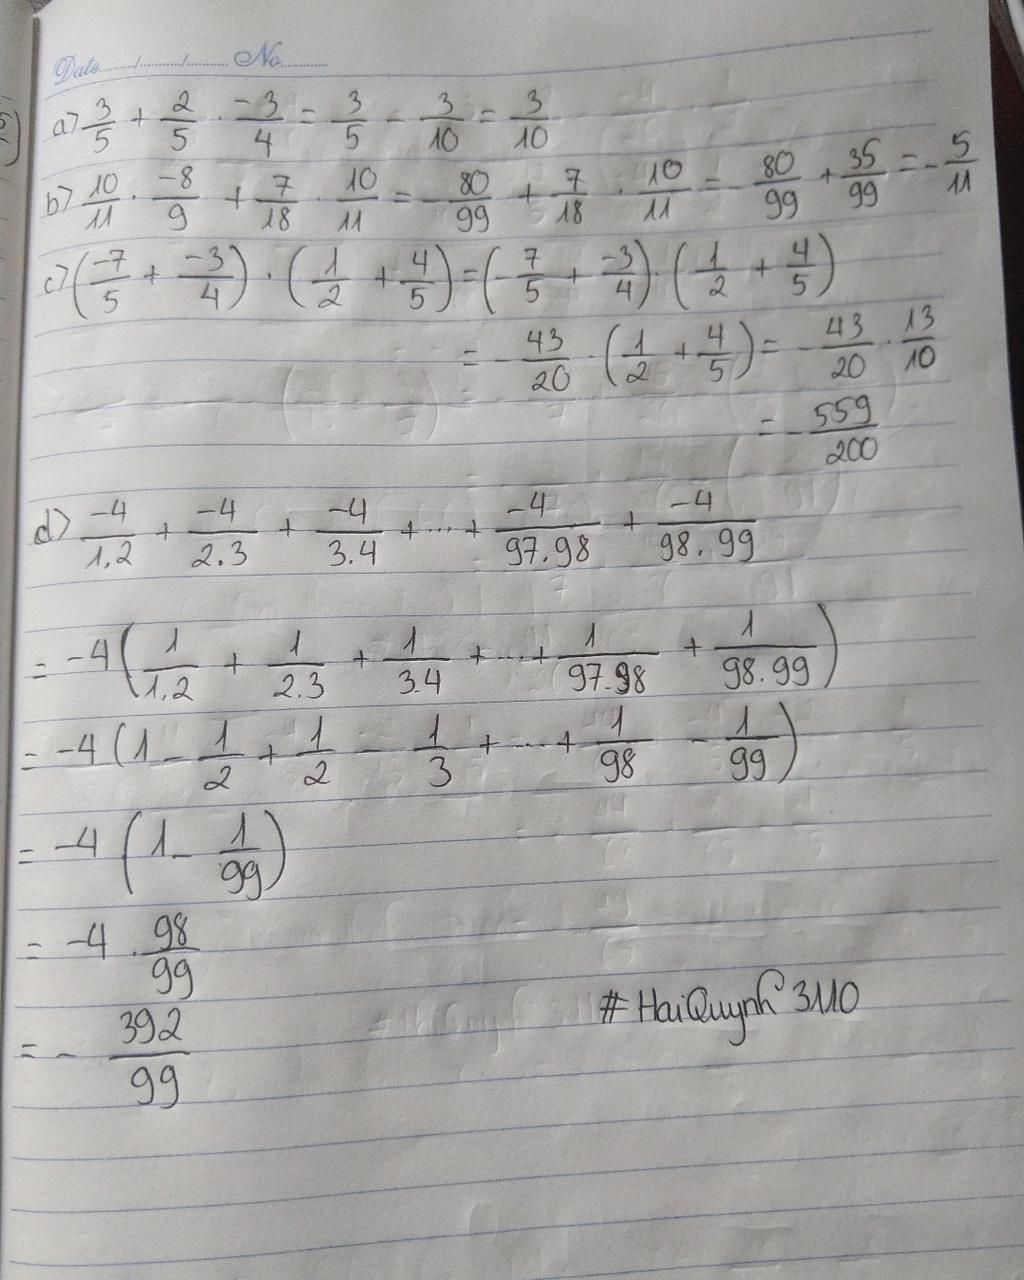 Date...../........../.......... No..........
a) 3/5 + 2/5 . -3/4 = 3/5 - 3/10 = 3/10
b) 10/11 . -8/9 + 7/18 . 10/11 = - 80/99 + 7/18 . 10/11 = - 80/99 + 35/99 = - 5/11
c) (-7/5 + -3/4) . (1/2 + 4/5) = (- 7/5 + -3/4) . (1/2 + 4/5)
= - 43/20 . (1/2 + 4/5) = - 43/20 . 13/10
= - 559/200
d) -4/1.2 + -4/2.3 + -4/3.4 + ... + -4/97.98 + -4/98.99
= -4 (1/1.2 + 1/2.3 + 1/3.4 + ... + 1/97.98 + 1/98.99)
= -4 (1 - 1/2 + 1/2 - 1/3 + ... + 1/98 - 1/99)
= -4 (1 - 1/99)
= -4 . 98/99
# HaiQuynh 3110
= - 392/99